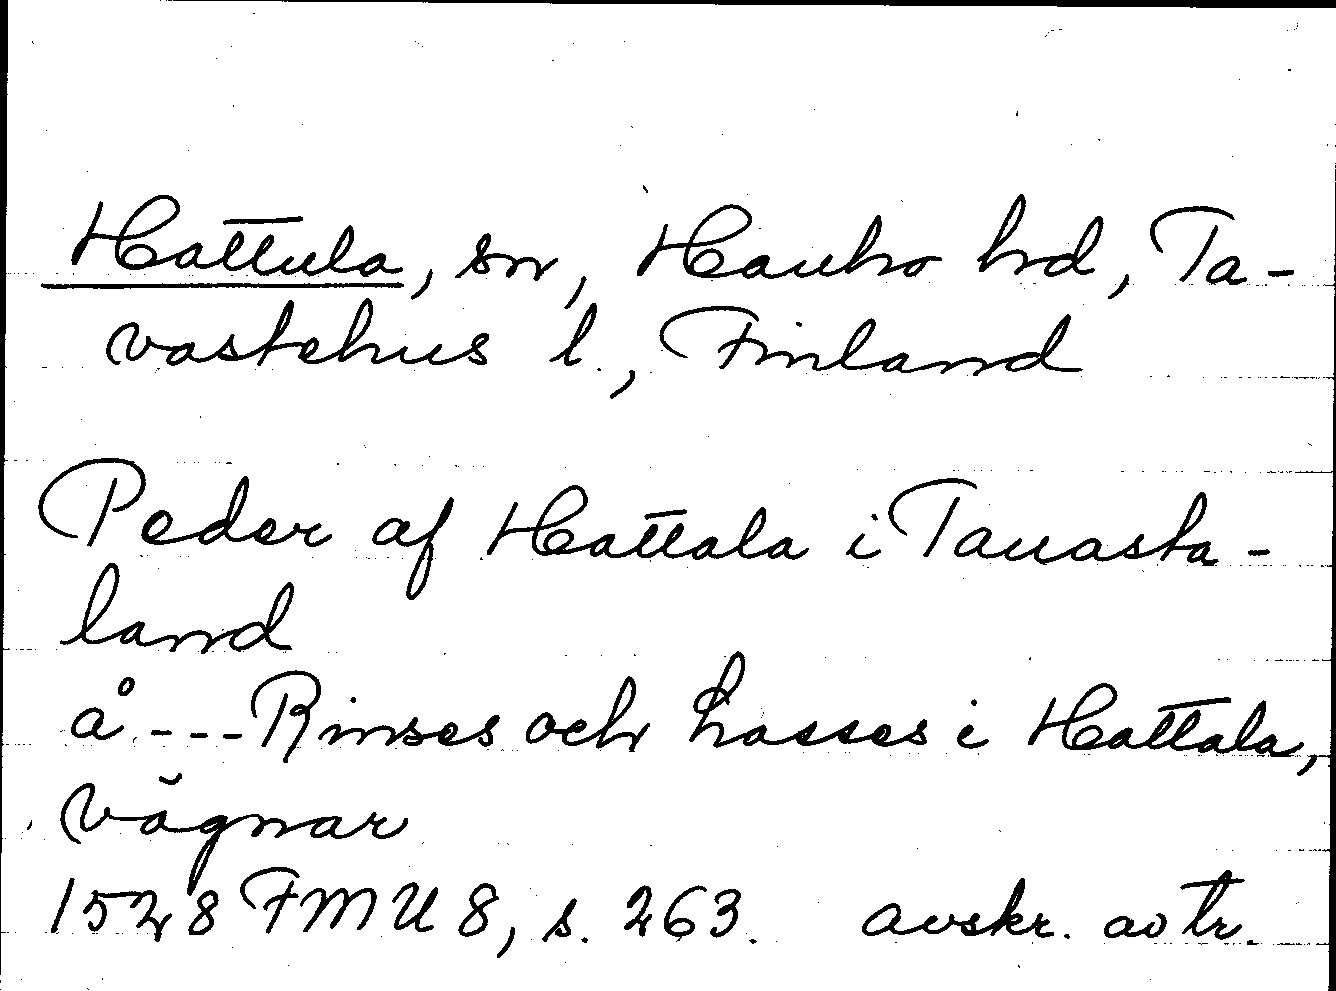 Hattula, sn, Hauho hd, Ta-
vastehus l., Finland
Peder af Hattala i Tauasta-
land
å --- Rinses och hasses i Hattala,
vägnar
1528 FMU 8, s. 263. avskr. av tr.